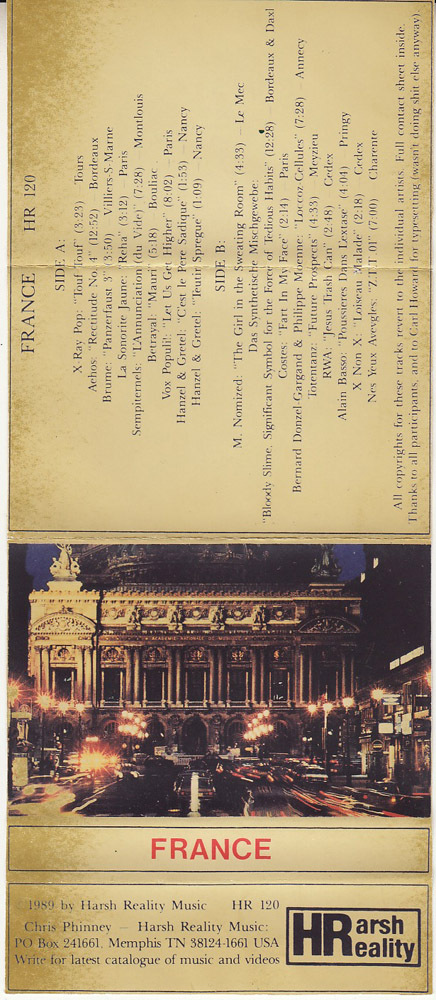 FRANCE HR 120
SIDE A:
X Ray Pop: "Touf Touf" (3:23) Tours
Aehos: "Rectitude No. 4" (12:52) Bordeaux
Brume: "Panzerfaust 3" (3:50) Villiers-S-Marne
La Sonorite Jaune: "Reha" (3:12) Paris
Sempiternels: "LAnnunciation (du Vide)" (7:28) Montlouis
Betrayal: "Mauri" (5:18) Bouliac
Vox Populi!: "Let Us Get Higher" (8:02) — Paris
Hanzel & Gretel: "C'est le Pere Sadique" (1:53) Nancy
Hanzel & Gretel: "Teutir Spregue" (1:09) Nancy
SIDE B:
M. Nomized: "The Girl in the Sweating Room" (4:33) — Le Mec
Das Synthetische Mischgewebe:
"Bloody Slime, Significant Symbol for the Force of Tedious Habits" (12:28) Bordeaux & Daxl
Costes: "Fart In My Face" (2:14) Paris
Bernard Donzel-Gargand & Philippe Moenne: "Loccoz-Cellules" (7:28) Annecy
Totentanz: "Future Prospects" (4:33) Meyzieu
RWA: "Jesus Trash Can" (2:48) Cedex
Alain Basso: "Poussieres Dans Lextase" (4:04) Pringy
X Non X: "Loiseau Malade" (2:18) Cedex
Nes Yeux Avevgles: "Z.T.T. 01" (7:00) Charente
All copyrights for these tracks revert to the individual artists. Full contact sheet inside.
Thanks to all participants, and to Carl Howard for typesetting (wasn't doing shit else anyway)
ACADEMIE NATIONALE DE MUSIQUE
FRANCE
1989 by Harsh Reality Music HR 120
Chris Phinney — Harsh Reality Music:
PO Box 241661, Memphis TN 38124-1661 USA
Write for latest catalogue of music and videos
HR arsh
eality